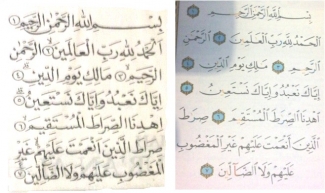 بِسْمِ اللَّهِ الرَّحْمَٰنِ الرَّحِيمِ ١
الْحَمْدُ لِلَّهِ رَبِّ الْعَالَمِينَ ٢ الرَّحْمَٰنِ
الرَّحِيمِ ٣ مَالِكِ يَوْمِ الدِّينِ ٤
إِيَّاكَ نَعْبُدُ وَإِيَّاكَ نَسْتَعِينُ ٥
اهْدِنَا الصِّرَاطَ الْمُسْتَقِيمَ ٦
صِرَاطَ الَّذِينَ أَنْعَمْتَ عَلَيْهِمْ غَيْرِ
الْمَغْضُوبِ عَلَيْهِمْ وَلَا الضَّالِّينَ ٧
بِسْمِ اللَّهِ الرَّحْمَٰنِ الرَّحِيمِ ١
الْحَمْدُ لِلَّهِ رَبِّ الْعَالَمِينَ ٢ الرَّحْمَٰنِ
الرَّحِيمِ ٣ مَالِكِ يَوْمِ الدِّينِ ٤
إِيَّاكَ نَعْبُدُ وَإِيَّاكَ نَسْتَعِينُ ٥
اهْدِنَا الصِّرَاطَ الْمُسْتَقِيمَ ٦ صِرَاطَ
الَّذِينَ أَنْعَمْتَ عَلَيْهِمْ غَيْرِ الْمَغْضُوبِ
عَلَيْهِمْ وَلَا الضَّالِّينَ ٧